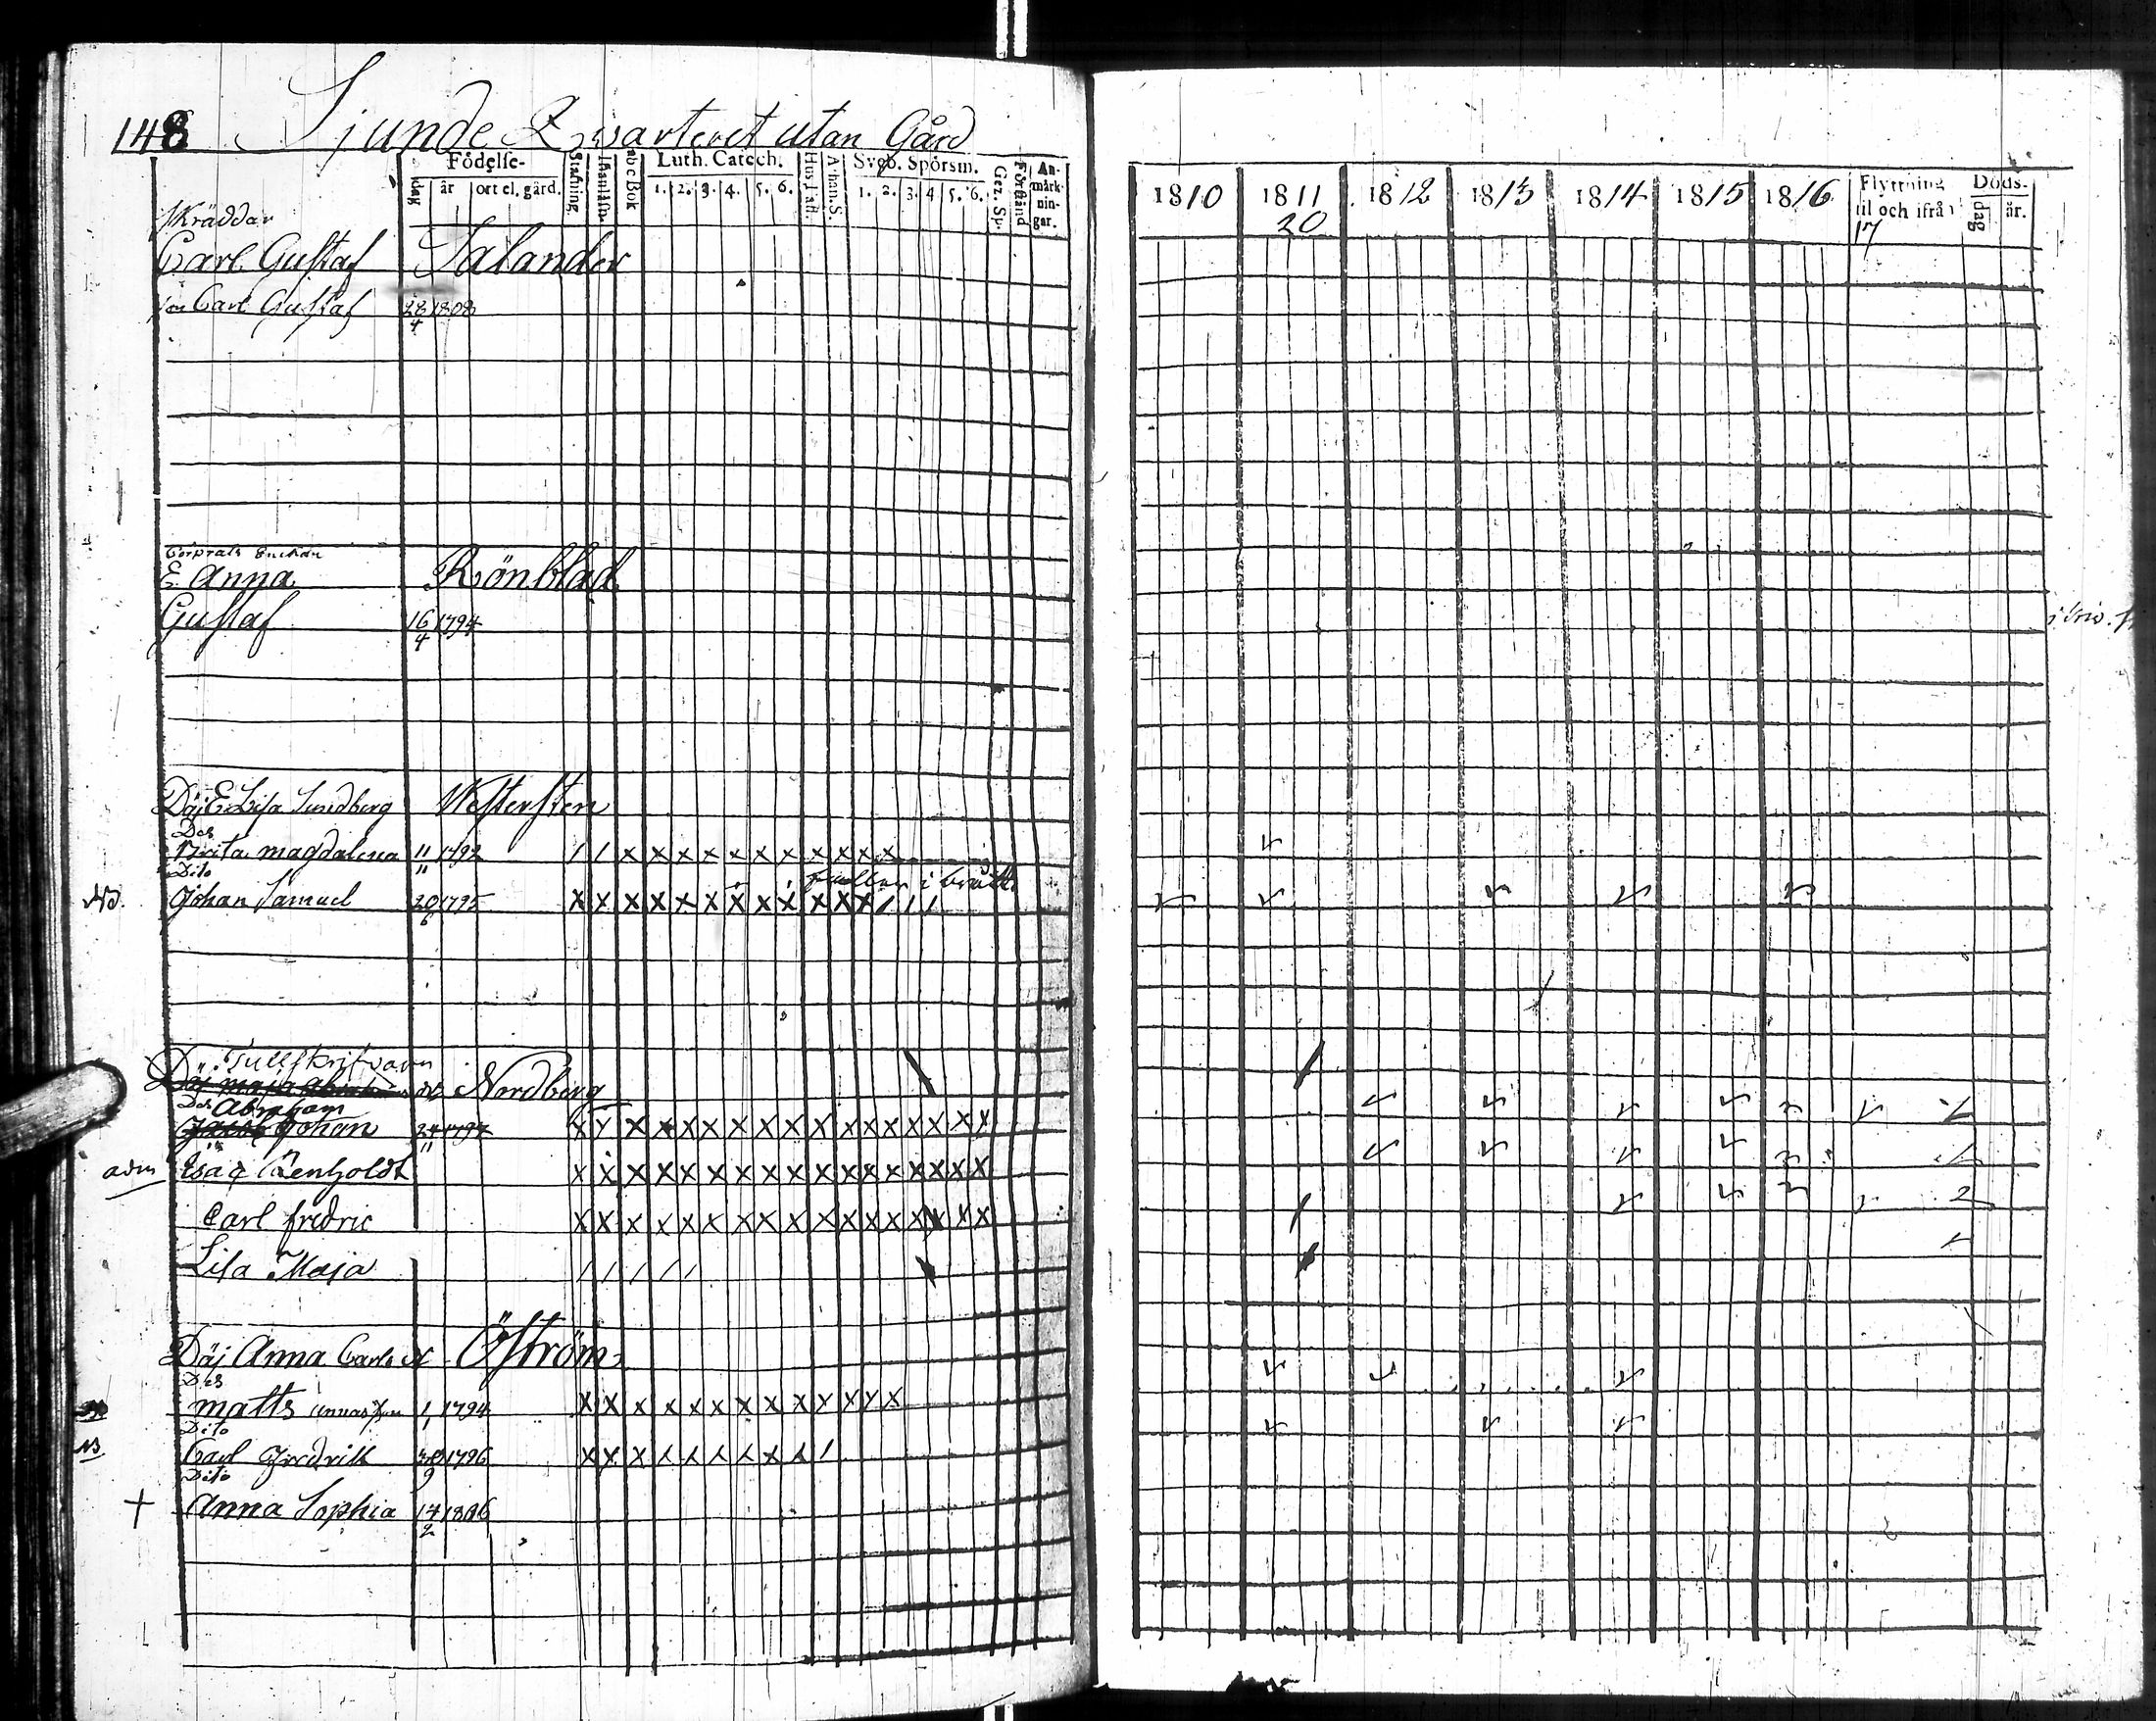 148 Sjunde Qwarteret utan Gård
Födelse- Stafning Innanläsn. abc Bok Luth. Catech. Hus Tafl. Athan. S. Sveb. Spörsm. Gez. Sp. Förstånd An-märk-nin-gar.
dag år ort el. gård. 1. 2. 3. 4. 5. 6. 1. 2. 3. 4 5. 6.
1810 1811 1812 1813 1814 1815 1816 Flyttning til och ifrån Döds-
20 17 dag år.
Skräddar
Carl Gustaf Salander
son Carl Gustaf 28/4 1808
Corprals Enckan
E. Anna Rönblad
Gustaf 16/4 1794
Däj E Lisa Sundberg Westersten
Des
Brita magdalena 11/11 1792 / / x x x x x x x x x x x
Dito
NB. Johan Samuel 20/6 1795 x x x x x x x x x x x x / / /
Tullskrifvarn
Däj Nordberg
Des Abraham
Johan 24/11 1797 x x x x x x x x x x x x x x x x x
adm Isac Renholdt x x x x x x x x x x x x x x x x x
Carl fredric x x x x x x x x x x x x x x x x x
Lisa Maja / / / / /
Däj Anna Carls Öström
Des
matts annas son 1/1 1794 x x x x x x x x x x x x x
Dito
NB Carl Fredrik 1796
Dito
+ Anna Sophia 14/2 1806